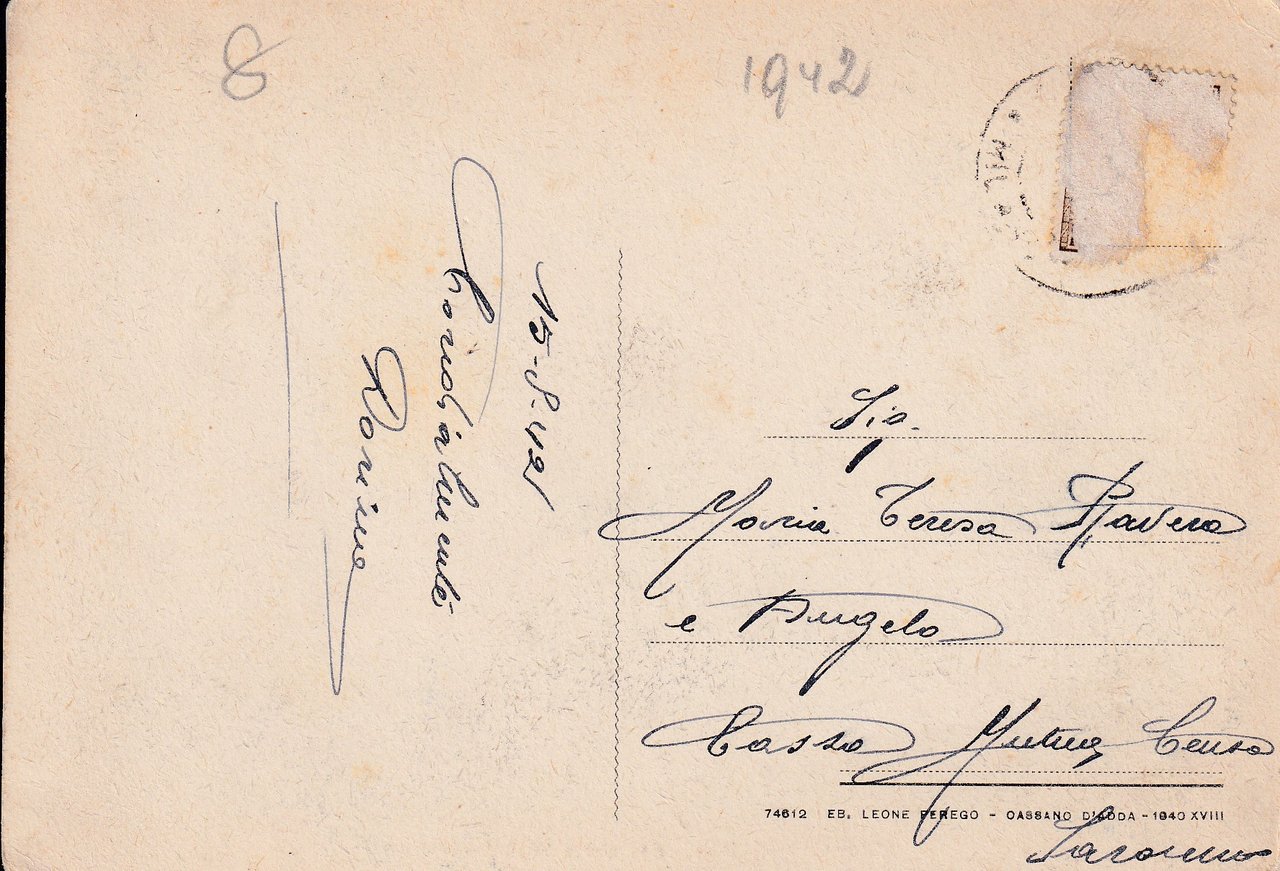 8
1942
MIL
15-8-42
Cordialmente
Rorina
Sig.
Maria Teresa Ravera
e Angelo
Cassa Mutua Censo
Saronno
74612 EB. LEONE PEREGO - CASSANO D'ADDA - 1940 XVIII